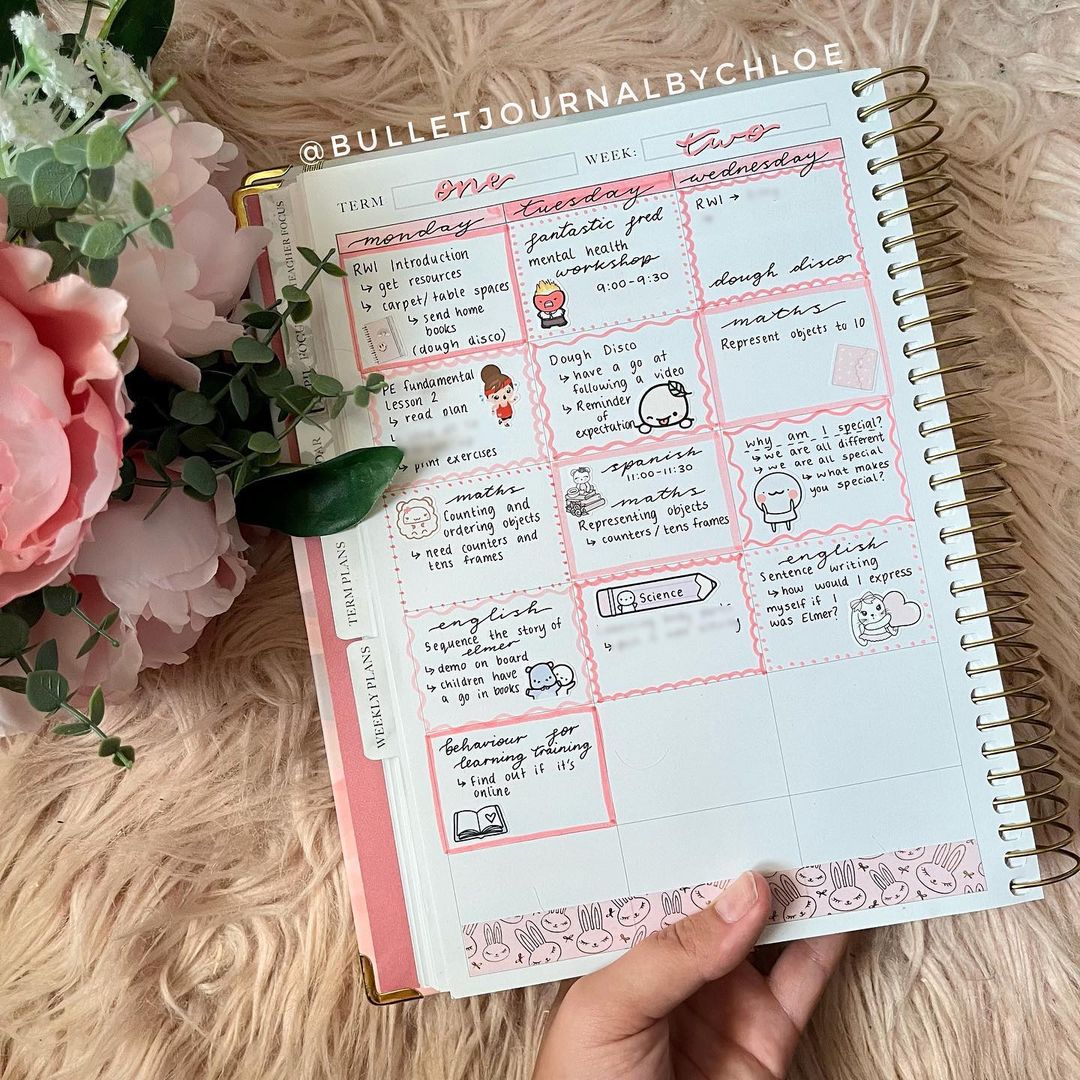 @BULLETJOURNALBYCHLOE
TERM one WEEK: two
monday
RWI Introduction
↳ get resources
↳ carpet/table spaces
↳ send home
books
(dough disco)
PE fundamental
Lesson 2
↳ read plan
↳
↳ print exercises
maths
Counting and
ordering objects
↳ need counters and
tens frames
english
Sequence the story of
elmer
↳ demo on board
↳ children have
a go in books
behaviour for
learning training
↳ find out if it's
online
tuesday
fantastic fred
mental health
workshop
9:00-9:30
Dough Disco
↳ have a go at
following a video
↳ Reminder
of
expectation
spanish
11:00-11:30
maths
Representing objects
↳ counters/tens frames
Science
↳
wednesday
RWI →
dough disco
maths
Represent objects to 10
why am I special?
↳ we are all different
↳ we are all special
↳ what makes
you special?
english
Sentence writing
↳ how would I express
myself if I
was Elmer?
TEACHER FOCUS
TERM PLANS
WEEKLY PLANS